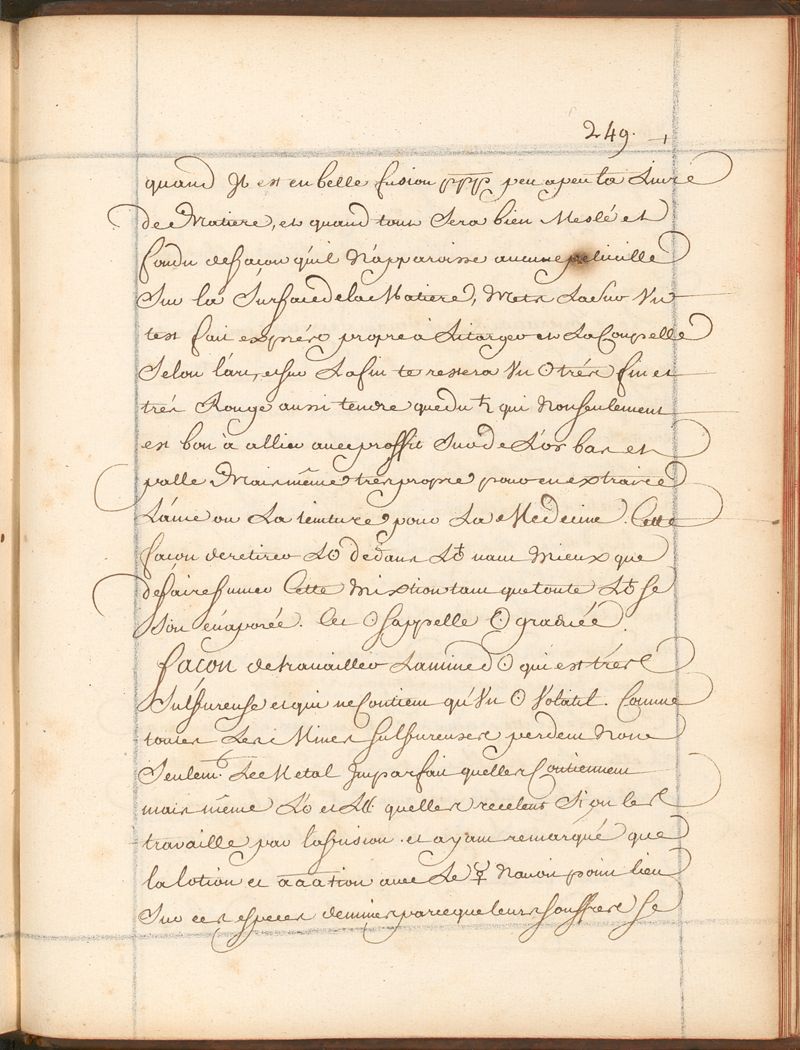 249.
quand Jl est en belle fusion ppp peu a peu ta Livre
de Matiere, et quand tout Sera bien Meslé et
fondu de façon qu'il N'apparoisse aucune pelicille
Sur la Surface de la Matiere, Mets La sur Un
test fait exprés propre à Litarger et La Coupelle
Selon l'art, et sur La fin te restera Un ☉ trés fin et
trés Rouge aussi tendre que du ♄ qui Non seulement
est bon à allier avec proffit Sur de L'or bas et
palle Mais même tres propre pour en extraire
L'ame ou La teinture pour La Medecine. Cette
façon de retirer L☉ de dans L♁ vaut Mieux que
de faire fumer Cette Mixtion tant que toute L♁ se
soit évaporée. Cet ☉ s'appelle ☉ graduée
façon de travailler La mine d☉ qui est trés
Sulfureuse et qui ne Contient qu'Un ☉ Volatil. Comme
toutes Les Mines sulfureuses perdent Non
Seulemt. Le Metal Jmparfait quelles Contiennent
mais même L'☉ et L☾ quelles recelent Si on les
travaille par la fusion. et ayant remarqué que
la lotion et aaaation avec Le ☿ Navoit point lieu
Sur ces especes de mines parceque leurs souffres se